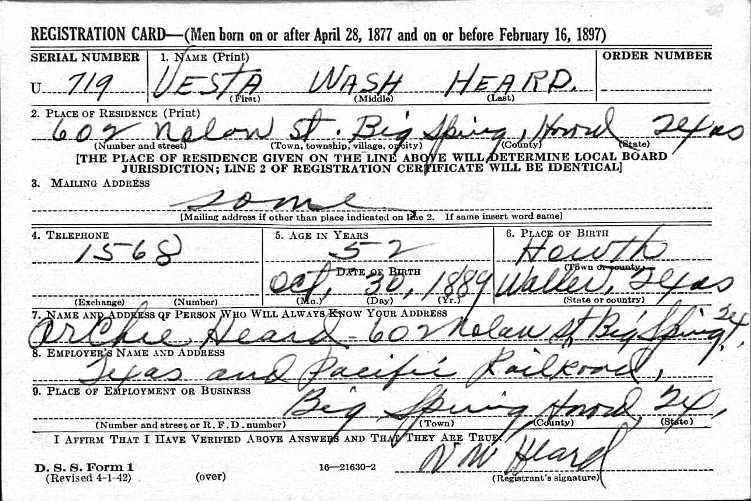 REGISTRATION CARD—(Men born on or after April 28, 1877 and on or before February 16, 1897)
SERIAL NUMBER 1. NAME (Print) ORDER NUMBER
U 719 VESTA WASH HEARD.
(First) (Middle) (Last)
2. PLACE OF RESIDENCE (Print)
602 Nolan St. Big Spring, Howard Texas
(Number and street) (Town, township, village, or city) (County) (State)
[THE PLACE OF RESIDENCE GIVEN ON THE LINE ABOVE WILL DETERMINE LOCAL BOARD
JURISDICTION; LINE 2 OF REGISTRATION CERTIFICATE WILL BE IDENTICAL]
3. MAILING ADDRESS
same
[Mailing address if other than place indicated on line 2. If same insert word same]
4. TELEPHONE 5. AGE IN YEARS 6. PLACE OF BIRTH
1568 52 Howth
DATE OF BIRTH (Town or county)
Oct, 30, 1889 Waller, Texas
(Exchange) (Number) (Mo.) (Day) (Yr.) (State or country)
7. NAME AND ADDRESS OF PERSON WHO WILL ALWAYS KNOW YOUR ADDRESS
Archie Heard - 602 Nolan St, Big Spring, Tex,
8. EMPLOYER'S NAME AND ADDRESS
Texas and Pacific Railroad,
9. PLACE OF EMPLOYMENT OR BUSINESS
Big Spring, Howard, Tex,
(Number and street or R. F. D. number) (Town) (County) (State)
I AFFIRM THAT I HAVE VERIFIED ABOVE ANSWERS AND THAT THEY ARE TRUE.
V W Heard
D. S. S. Form 1
(Revised 4-1-42) (over) 16—21630-2 (Registrant's signature)